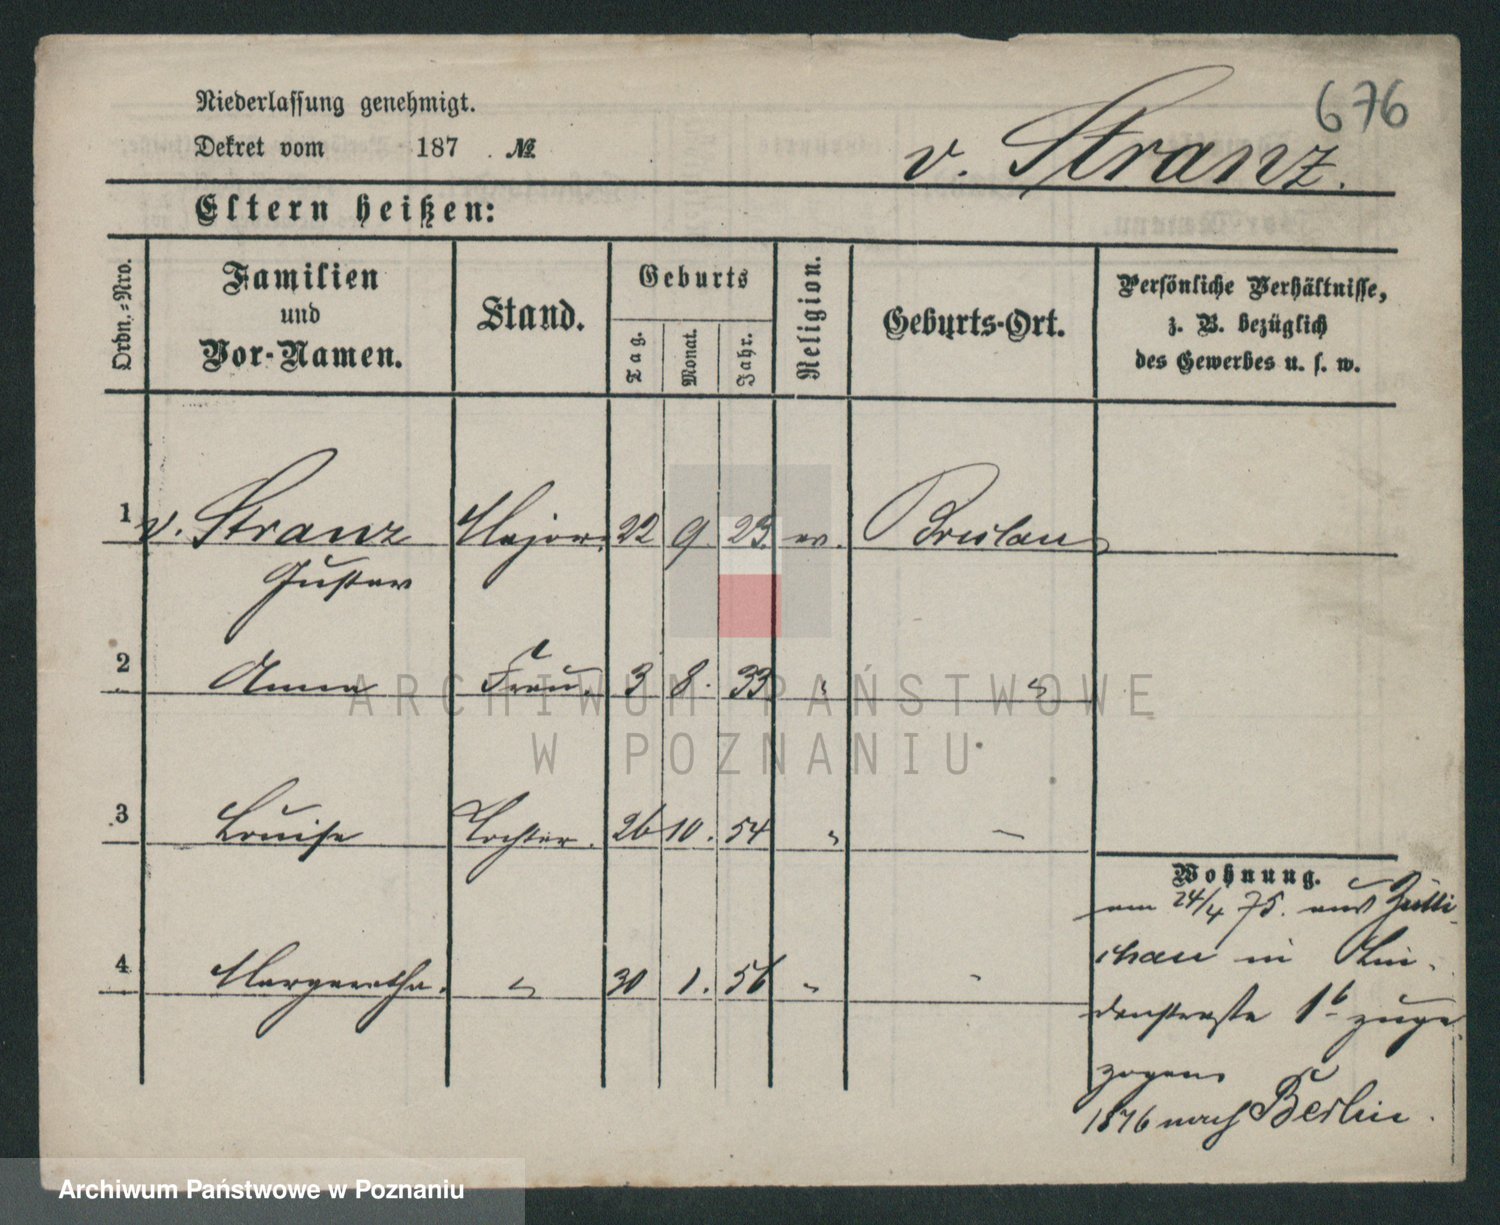 676
Niederlassung genehmigt.
Dekret vom 187 . №
v. Stranz.
Eltern heißen:
Ordn.=Nro.
Familien
und
Vor-Namen.
Stand.
Geburts
Tag.
Monat.
Jahr.
Religion.
Geburts-Ort.
Persönliche Verhältnisse,
z. B. bezüglich
des Gewerbes u. s. w.
1 v. Stranz Major. 22 9. 23. ev. Breslau
Gustav
2 Anna Frau. 3 8. 33 " "
3 Louise Tochter. 26 10. 54 " —
4 Margarethe. " 30 1. 56 " "
Wohnung.
am 24/4 75. aus Zülli
chau in Lin-
denstraße 1b zuge
zogen
1876 nach Berlin.
ARCHIWUM PAŃSTWOWE
W POZNANIU
Archiwum Państwowe w Poznaniu